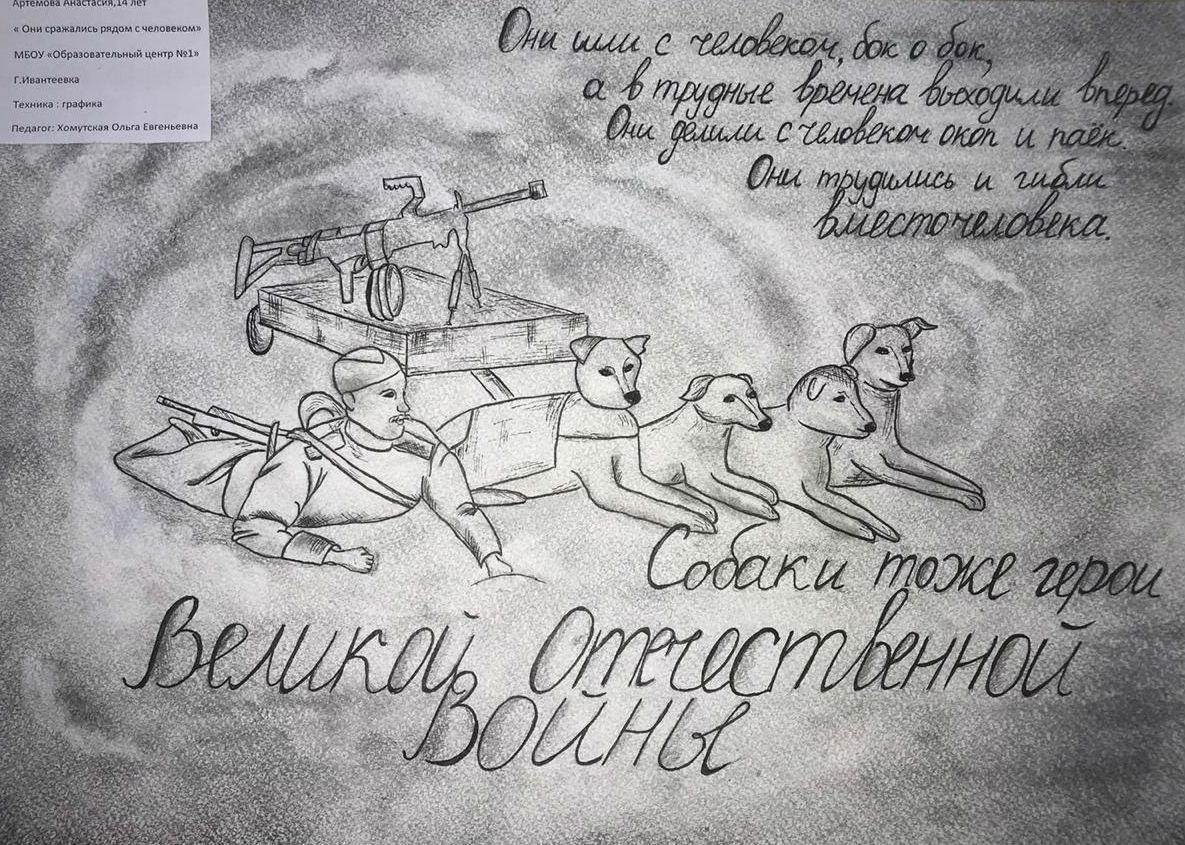 Артемова Анастасия,14 лет
« Они сражались рядом с человеком»
МБОУ «Образовательный центр №1»
Г.Ивантеевка
Техника : графика
Педагог: Хомутская Ольга Евгеньевна
Они шли с человеком, бок о бок,
а в трудные времена выходили вперед.
Они делили с человеком окоп и паёк.
Они трудились и гибли
вместо человека.
Собаки тоже герои
Великой Отечественной
войны